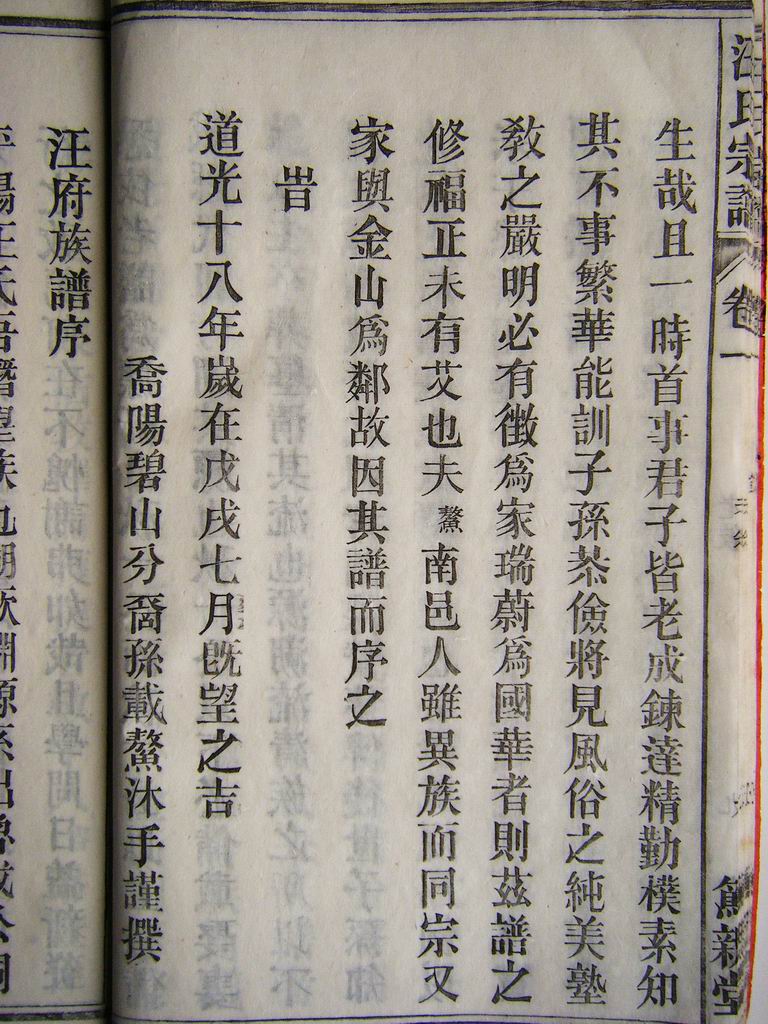 汪氏宗譜
卷一
篤親堂
生哉且一時首事君子皆老成鍊達精勤樸素知
其不事繁華能訓子孫恭儉將見風俗之純美塾
敎之嚴明必有徵爲家瑞蔚爲國華者則茲譜之
修福正未有艾也夫鰲南邑人雖異族而同宗又
家與金山爲鄰故因其譜而序之
旹
道光十八年歲在戊戌七月旣望之吉
喬陽碧山分裔孫載鰲沐手謹撰
汪府族譜序
陽汪氏吾
族也
淵源系出魯成公